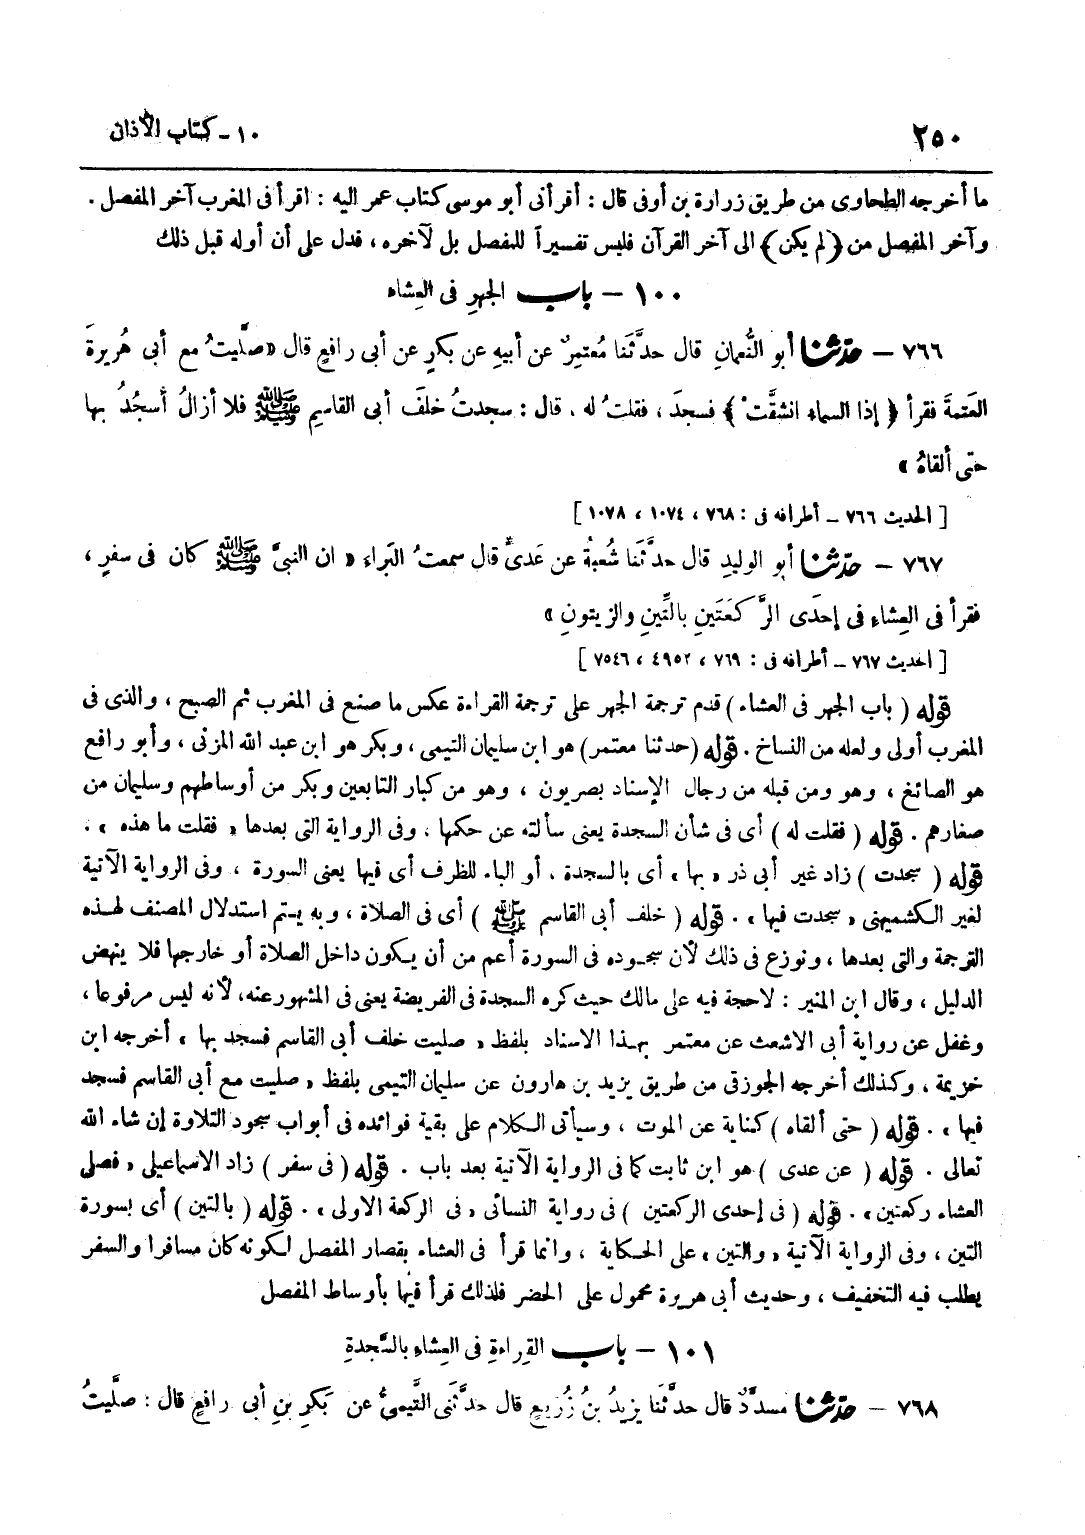 ٢٥٠
١٠ - كتاب الأذان
ما أخرجه الطحاوى من طريق زرارة بن أوفى قال : أقرأنى أبو موسى كتاب عمر اليه : اقرأ فى المغرب آخر المفصل .
وآخر المفصل من ﴿ لم يكن ﴾ الى آخر القرآن فليس تفسيراً للمفصل بل لآخره ، فدل على أن أوله قبل ذلك
١٠٠ - باب الجهرِ فى العِشاء
٧٦٦ - حدّثنا أبو النُّعمانِ قال حدَّثَنا مُعتمِرٌ عن أبيهِ عن بكرٍ عن أبى رافعٍ قال « صلَّيتُ مع أبى هُريرةَ
العَتمةَ فقرأ ﴿ إذا السماء انشقَّتْ ﴾ فسجدَ ، فقلتُ له . قال : سجدتُ خلفَ أبى القاسِم ﷺ فلا أزالُ أسجُدُ بها
حتى ألقاهُ »
[ الحديث ٧٦٦ - أطرافه فى : ٧٦٨ ، ١٠٧٤ ، ١٠٧٨ ]
٧٦٧ - حدّثنا أبو الوليدِ قال حدَّثَنا شُعبةُ عن عَدىٍّ قال سمعتُ البَراء « ان النبىَّ ﷺ كان فى سفرٍ ،
فقرأ فى العِشاءِ فى إحدَى الرَّكعَتَينِ بالتِّينِ والزيتونِ »
[ الحديث ٧٦٧ - أطرافه فى : ٧٦٩ ، ٤٩٥٢ ، ٧٥٤٦ ]
قوله ( باب الجهر فى العشاء ) قدم ترجمة الجهر على ترجمة القراءة عكس ما صنع فى المغرب ثم الصبح ، والذى فى
المغرب أولى ولعله من النساخ . قوله ( حدثنا معتمر ) هو ابن سليمان التيمى ، وبكر هو ابن عبد الله المزنى ، وأبو رافع
هو الصائغ ، وهو ومن قبله من رجال الإسناد بصريون ، وهو من كبار التابعين وبكر من أوساطهم وسليمان من
صغارهم . قوله ( فقلت له ) أى فى شأن السجدة يعنى سألته عن حكمها ، وفى الرواية التى بعدها « فقلت ما هذه » .
قوله ( سجدت ) زاد غير أبى ذر « بها » أى بالسجدة ، أو الباء للظرف أى فيها يعنى السورة ، وفى الرواية الآتية
لغير الكشميهنى « سجدت فيها » . قوله ( خلف أبى القاسم ﷺ ) أى فى الصلاة ، وبه يتم استدلال المصنف لهذه
الترجمة والتى بعدها ، ونوزع فى ذلك لأن سجوده فى السورة أعم من أن يكون داخل الصلاة أو خارجها فلا ينهض
الدليل ، وقال ابن المنير : لا حجة فيه على مالك حيث كره السجدة فى الفريضة يعنى فى المشهور عنه، لأنه ليس مرفوعا ،
وغفل عن رواية أبى الاشعث عن معتمر بهذا الاسناد بلفظ « صليت خلف أبى القاسم فسجد بها » أخرجه ابن
خزيمة ، وكذلك أخرجه الجوزقى من طريق يزيد بن هارون عن سليمان التيمى بلفظ « صليت مع أبى القاسم فسجد
فيها » . قوله ( حتى ألقاه ) كناية عن الموت ، وسيأتى الكلام على بقية فوائده فى أبواب سجود التلاوة إن شاء الله
تعالى . قوله ( عن عدى ) هو ابن ثابت كما فى الرواية الآتية بعد باب . قوله ( فى سفر ) زاد الاسماعيلى « فصلى
العشاء ركعتين » . قوله ( فى إحدى الركعتين ) فى رواية النسائى « فى الركعة الاولى » . قوله ( بالتين ) أى بسورة
التين ، وفى الرواية الآتية « والتين » على الحكاية ، وانما قرأ فى العشاء بقصار المفصل لكونه كان مسافرا والسفر
يطلب فيه التخفيف ، وحديث أبى هريرة محمول على الحضر فلذلك قرأ فيها بأوساط المفصل
١٠١ - باب القِراءةِ فى العِشاءِ بالسَّجدةِ
٧٦٨ - حدّثنا مسدَّدٌ قال حدَّثَنا يزيدُ بنُ زُرَيعٍ قال حدَّثَنى التَّيمىُّ عن بَكرِ بنِ أبى رافعٍ قال : صلَّيتُ